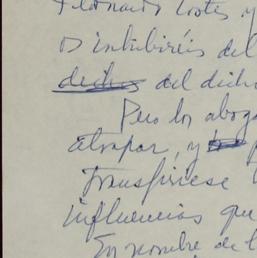 Leonardo Cortes y
os inhibiréis del
dichos del dicho
Pero los aboga
atrapar, y
Transfiriese
influencias que
En nombre de l